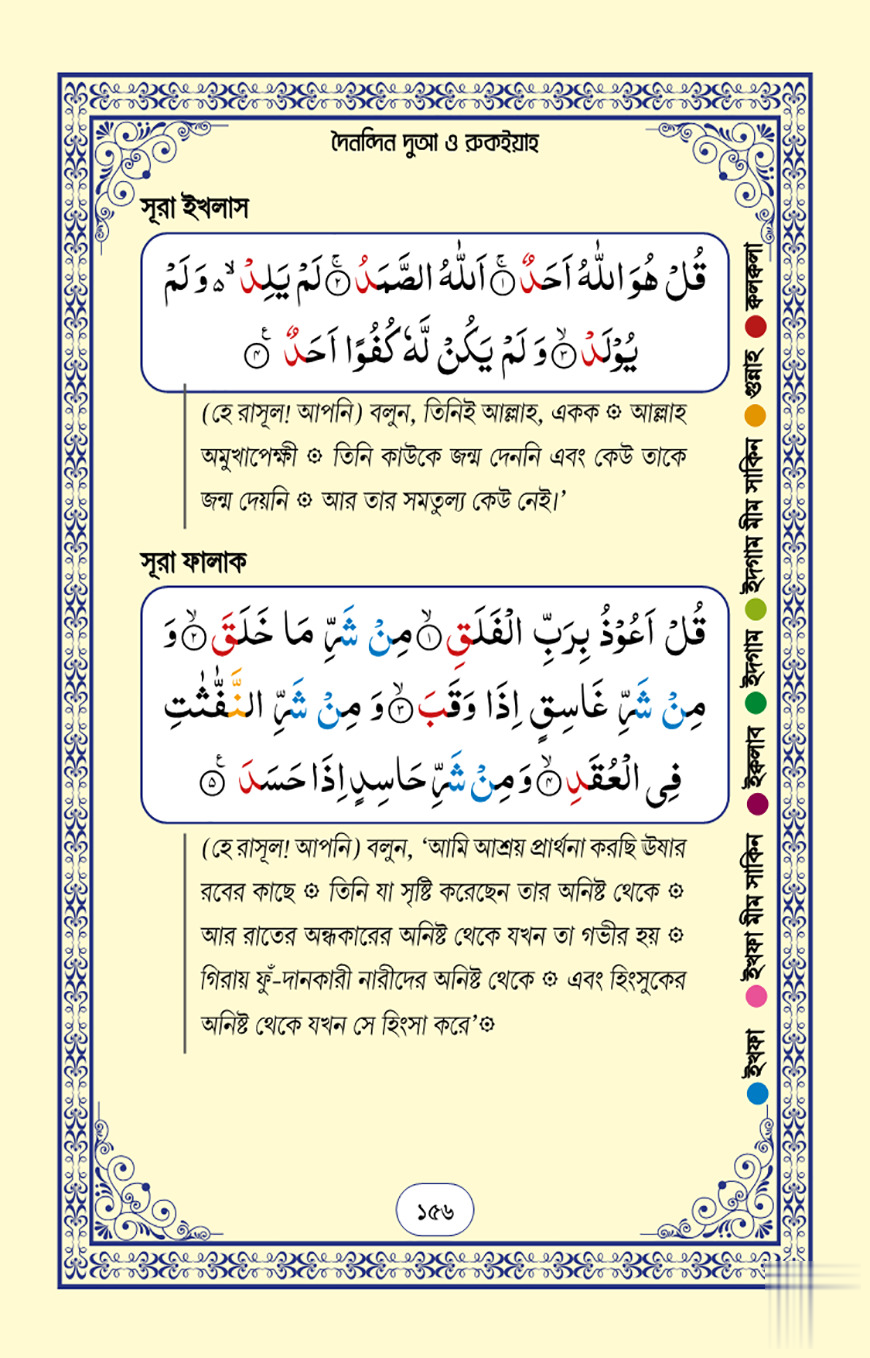 দৈনন্দিন দুআ ও রুকইয়াহ
সূরা ইখলাস
قُلْ هُوَ اللّٰهُ اَحَدٌ ۚ﴿۱﴾ اَللّٰهُ الصَّمَدُ ۚ﴿۲﴾ لَمْ يَلِدْ ۙ۬ وَ لَمْ
يُوْلَدْ ۙ﴿۳﴾ وَ لَمْ يَكُنْ لَّهٗ كُفُوًا اَحَدٌ ﴿۴﴾ ع
(হে রাসূল! আপনি) বলুন, তিনিই আল্লাহ, একক ۞ আল্লাহ
অমুখাপেক্ষী ۞ তিনি কাউকে জন্ম দেননি এবং কেউ তাকে
জন্ম দেয়নি ۞ আর তার সমতুল্য কেউ নেই।’
সূরা ফালাক
قُلْ اَعُوْذُ بِرَبِّ الْفَلَقِ ۙ﴿۱﴾ مِنْ شَرِّ مَا خَلَقَ ۙ﴿۲﴾ وَ
مِنْ شَرِّ غَاسِقٍ اِذَا وَقَبَ ۙ﴿۳﴾ وَ مِنْ شَرِّ النَّفّٰثٰتِ
فِى الْعُقَدِ ۙ﴿۴﴾ وَ مِنْ شَرِّ حَاسِدٍ اِذَا حَسَدَ ﴿۵﴾ ع
(হে রাসূল! আপনি) বলুন, ‘আমি আশ্রয় প্রার্থনা করছি ঊষার
রবের কাছে ۞ তিনি যা সৃষ্টি করেছেন তার অনিষ্ট থেকে ۞
আর রাতের অন্ধকারের অনিষ্ট থেকে যখন তা গভীর হয় ۞
গিরায় ফুঁ-দানকারী নারীদের অনিষ্ট থেকে ۞ এবং হিংসুকের
অনিষ্ট থেকে যখন সে হিংসা করে’۞
ইখফা ইখফা মীম সাকিন ইকলাব ইদগাম ইদগাম মীম সাকিন গুন্নাহ কলকলা
১৫৬